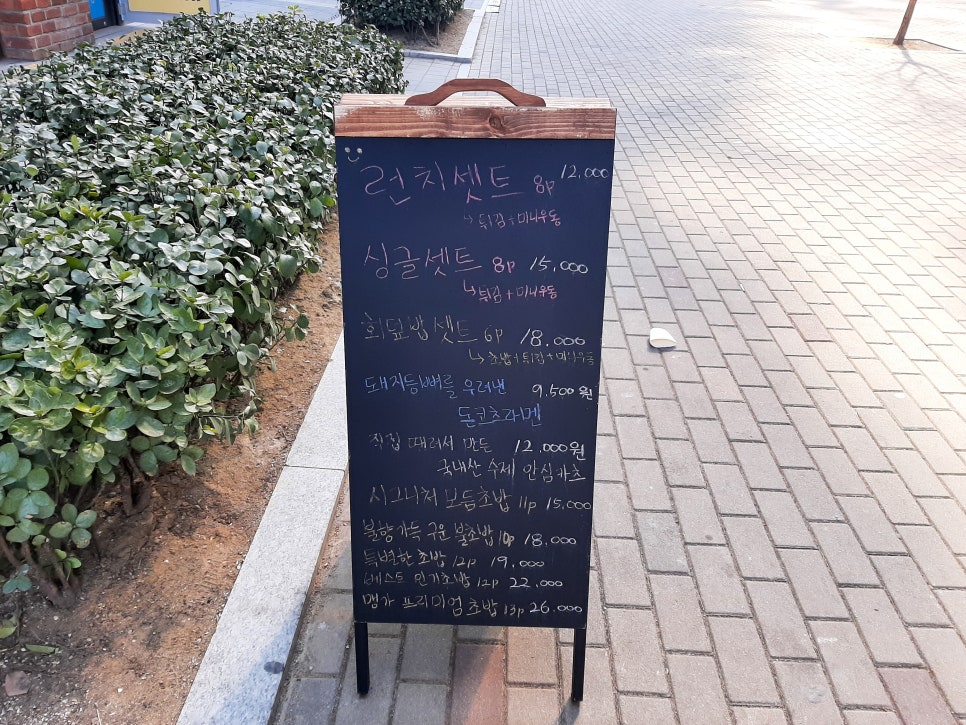 런치셋트 8p 12,000
↳ 튀김+미니우동
싱글셋트 8p 15,000
↳ 튀김+미니우동
회덮밥 셋트 6p 18,000
↳ 초밥+튀김+미니우동
돼지등뼈를 우려낸 9,500원
돈코츠라멘
직접 때려서 만든 12,000원
국내산 수제 안심카츠
시그니처 모듬초밥 11p 15,000
불향가득 구운 불초밥 10p 18,000
특별한 초밥 12p 19,000
베스트 인기초밥 12p 22,000
맹가 프리미엄 초밥 13p 26,000